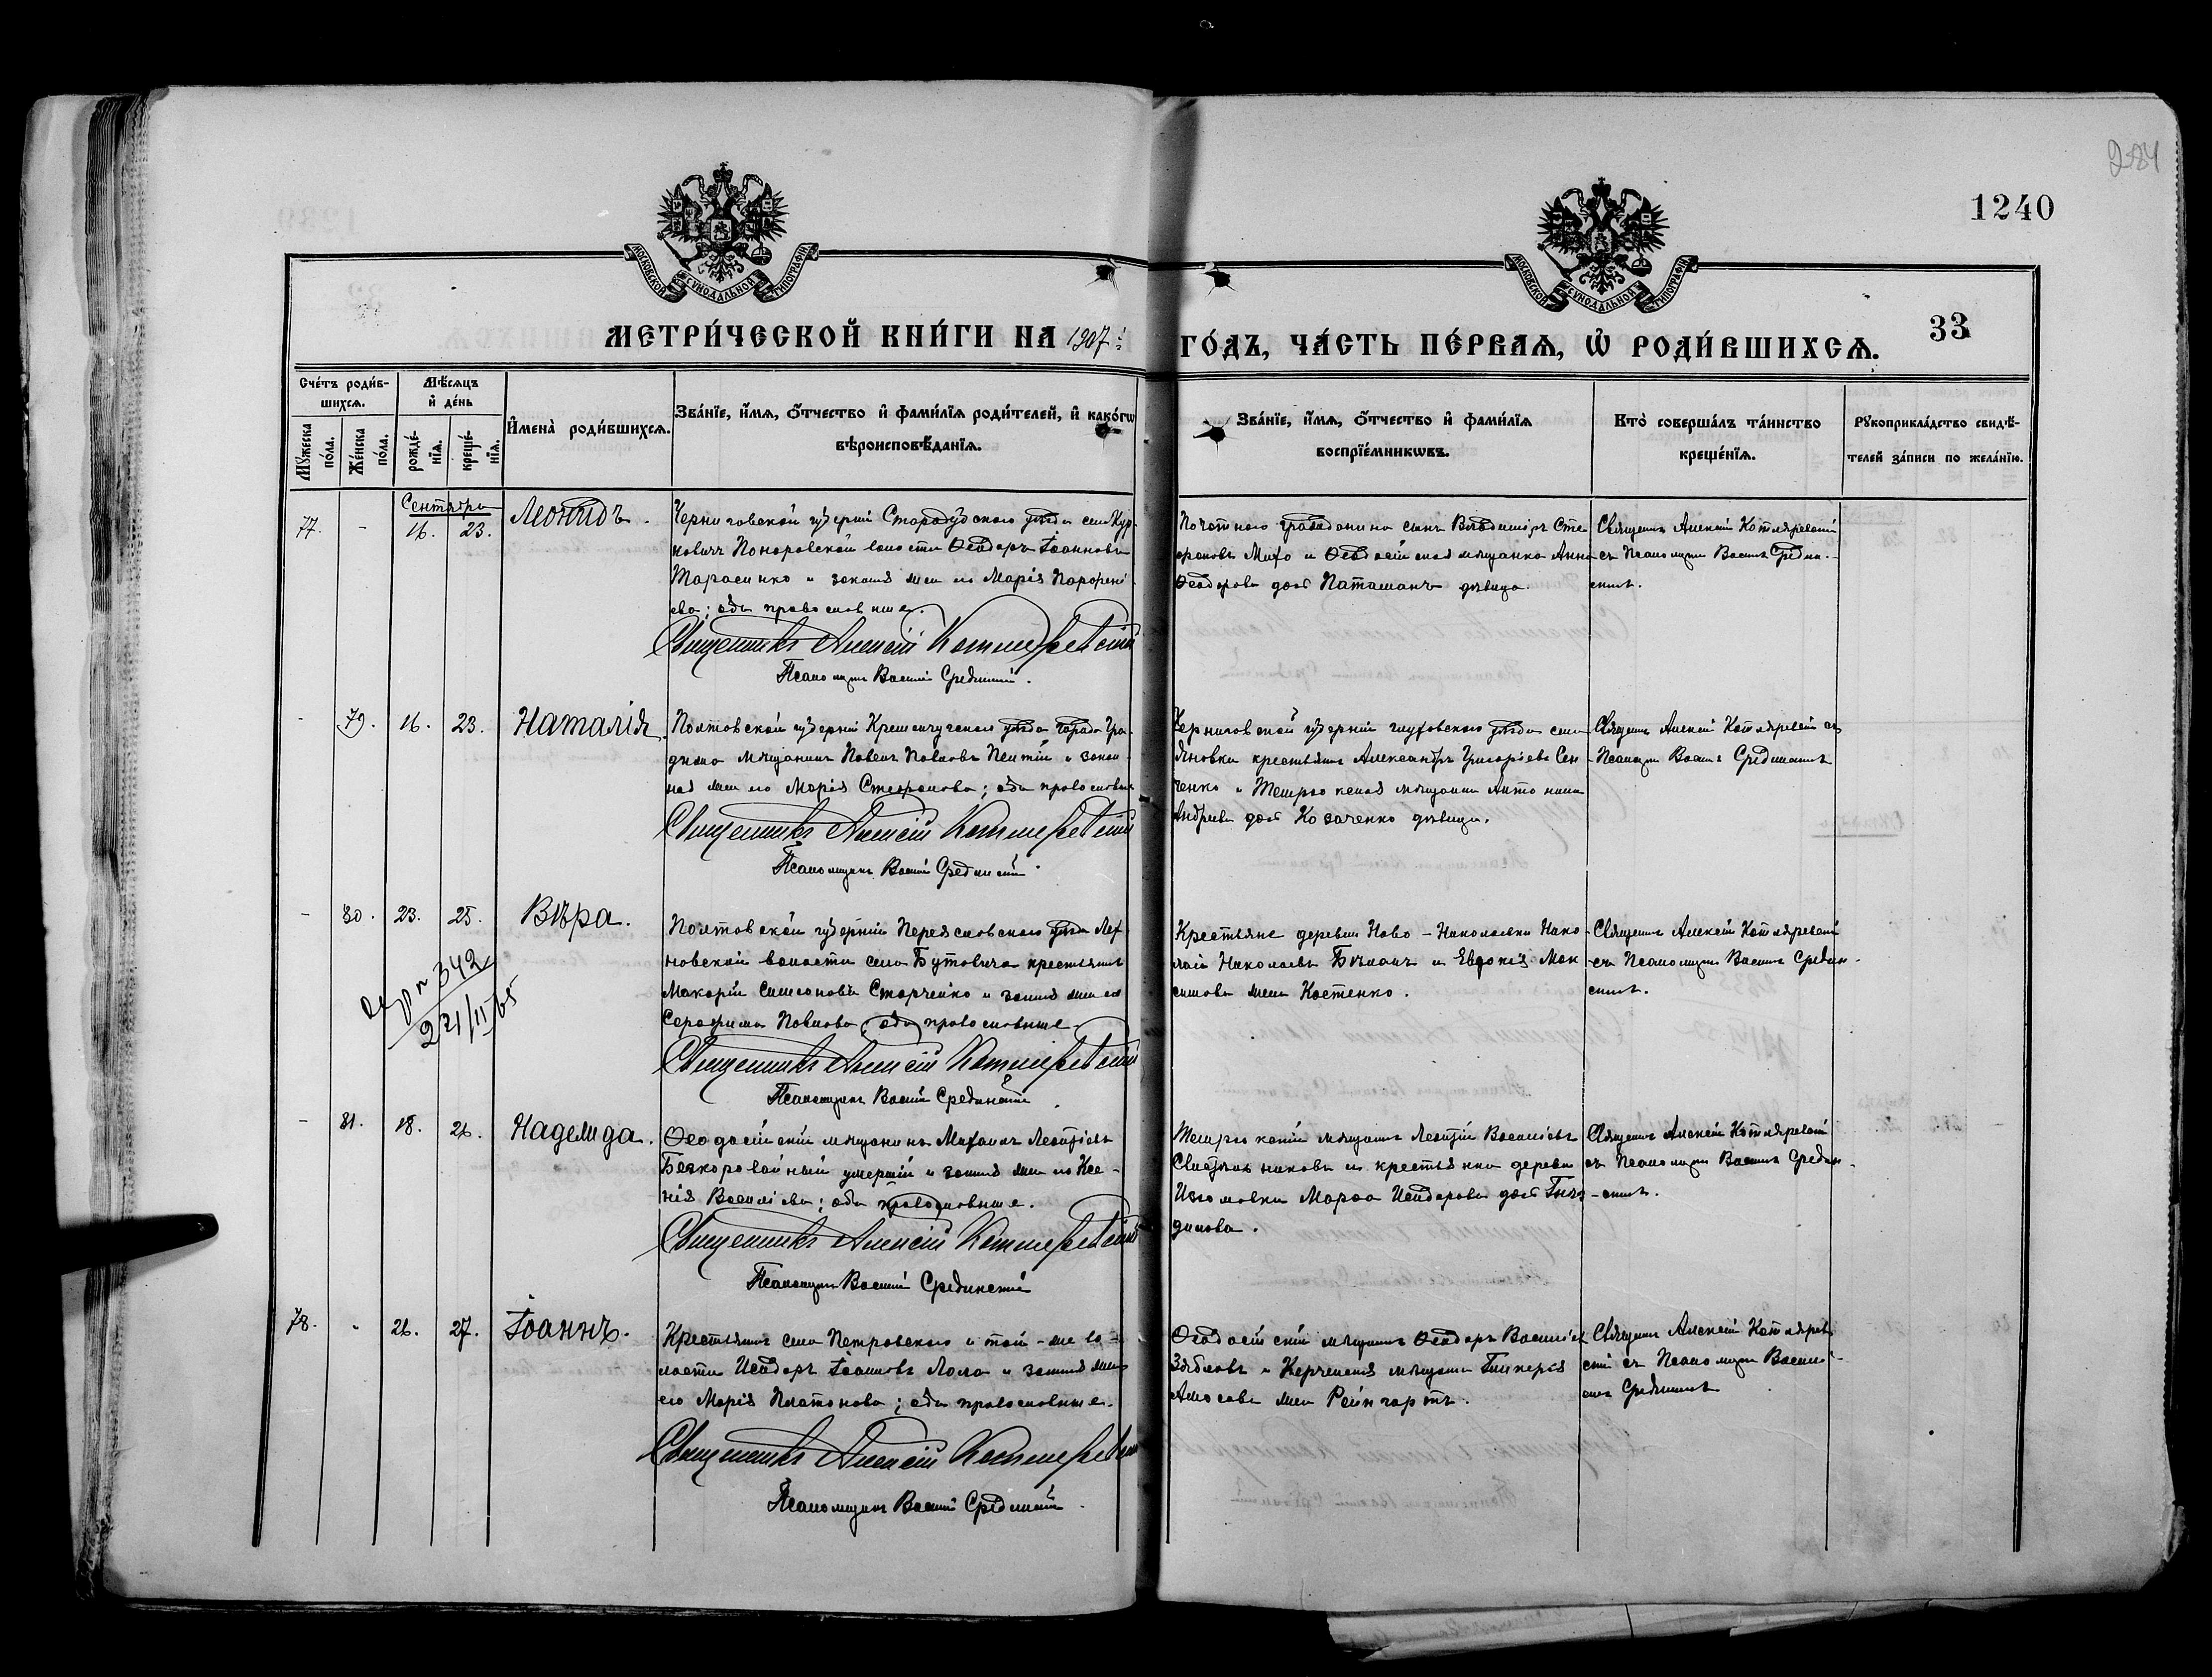 284
1240
МОСКОВСКОЙ СУНОДАЛЬНОЙ ТИПОГРАФІИ
МОСКОВСКОЙ СУНОДАЛЬНОЙ ТИПОГРАФІИ
33
МЕТРИ́ЧЕСКОЙ КНИ́ГИ НА 1907 ГО́ДЪ, ЧА́СТЬ ПЕ́РВАѦ, Ѡ҆ РОДИ́ВШИХСѦ.
Сче́тъ роди́в-
шихсѧ.
Мѣ́сѧцъ
и҆ де́нь
И҆мена̀ роди́вшихсѧ.
Зва́нїе, и҆́мѧ, ѻ҆́тчество и҆ фами́лїѧ роди́телей, и҆ како́гѡ
вѣроисповѣ́данїѧ.
Зва́нїе, и҆́мѧ, ѻ҆́тчество и҆ фами́лїѧ
воспрїе́мникѡвъ.
Кто̀ соверша́лъ та́инство
креще́нїѧ.
Рꙋкоприкла́дство свидѣ́-
телей за́писи по жела́нїю.
Мꙋ́жеска
по́ла.
Же́нска
по́ла.
рожде́-
нїѧ.
креще́-
нїѧ.
Сентября
77. - 16. 23. Леонидъ.
Черниговской губерніи Стародубскаго уѣзда села Кур-
ковичъ Понуровской волости Ѳеодоръ Іоанновъ
Тарасенко и законная жена его Марія Парфені-
ева; оба православные.
Священникъ Алексій Котляревскій
Псаломщикъ Василій Срединскій.
Почетнаго гражданина сынъ Владиміръ Сте-
фановъ Михо и Ѳеодосійская мѣщанка Анна
Ѳеодорова дочь Паташанъ дѣвица.
Священникъ Алексій Котляревскій
съ Псаломщик Василіемъ Средин-
скимъ.
- 79. 16. 23. Наталія.
Полтавской губерніи Кременчугскаго уѣзда города Гра-
дижа мѣщанинъ Павелъ Павловъ и закон-
ная жена его Марія Стефанова; оба православные
Священникъ Алексій Котляревскій
Псаломщикъ Василій Срединскій
Черниговской губерніи Глуховскаго уѣзда села
крестьянинъ Александръ Григорьевъ Сен-
ченко и Темрюкская мѣщанка Антонина
Андреева дочь Козаченко дѣвица.
Священникъ Алексій Котляревскій съ
Псаломщик Василіемъ Срединскимъ
- 80. 23. 25. Вѣра.
№ 342
21/II 65
Полтавской губерніи Переяславскаго уѣзда
волости села крестьянинъ
Макарій Симеоновъ Старченко и законная жена его
Серафима Павлова; оба православные.
Священникъ Алексій Котляревскій
Псаломщикъ Василій Срединскій
Крестьяне деревни Ново-Николаевки Нико-
лай Николаевъ и Евдокія Мак-
симова жена Костенко.
Священникъ Алексій Котляревскій
съ Псаломщик Василіемъ Средин-
скимъ.
- 81. 18. 26. Надежда.
Ѳеодосійскій мѣщанинъ Михаилъ Леонтіевъ
Безкоровайный умершій и законная жена его Ксе-
нія Василіева; оба православные.
Священникъ Алексій Котляревскій
Псаломщикъ Василій Срединскій
Темрюкскій мѣщанинъ Леонтій Василіевъ
и крестьянка деревни
Марѳа Исидорова дочь
Священникъ Алексій Котляревскій
съ Псаломщик Василіемъ Средин-
скимъ.
78. - 26. 27. Іоаннъ.
Крестьянинъ села Петровскаго и той-же во-
лости Исидоръ Іоанновъ Лола и законная жена
его Марія Платонова; оба православные.
Священникъ Алексій Котляревскій
Псаломщикъ Василій Срединскій
Ѳеодосійскій мѣщанинъ Ѳеодоръ Василіевъ
Зябловъ и Керченская мѣщанка Гликерія
Амосова жена Рейнгартъ.
Священникъ Алексій Котлярев-
скій съ Псаломщик Василі-
емъ Срединскимъ